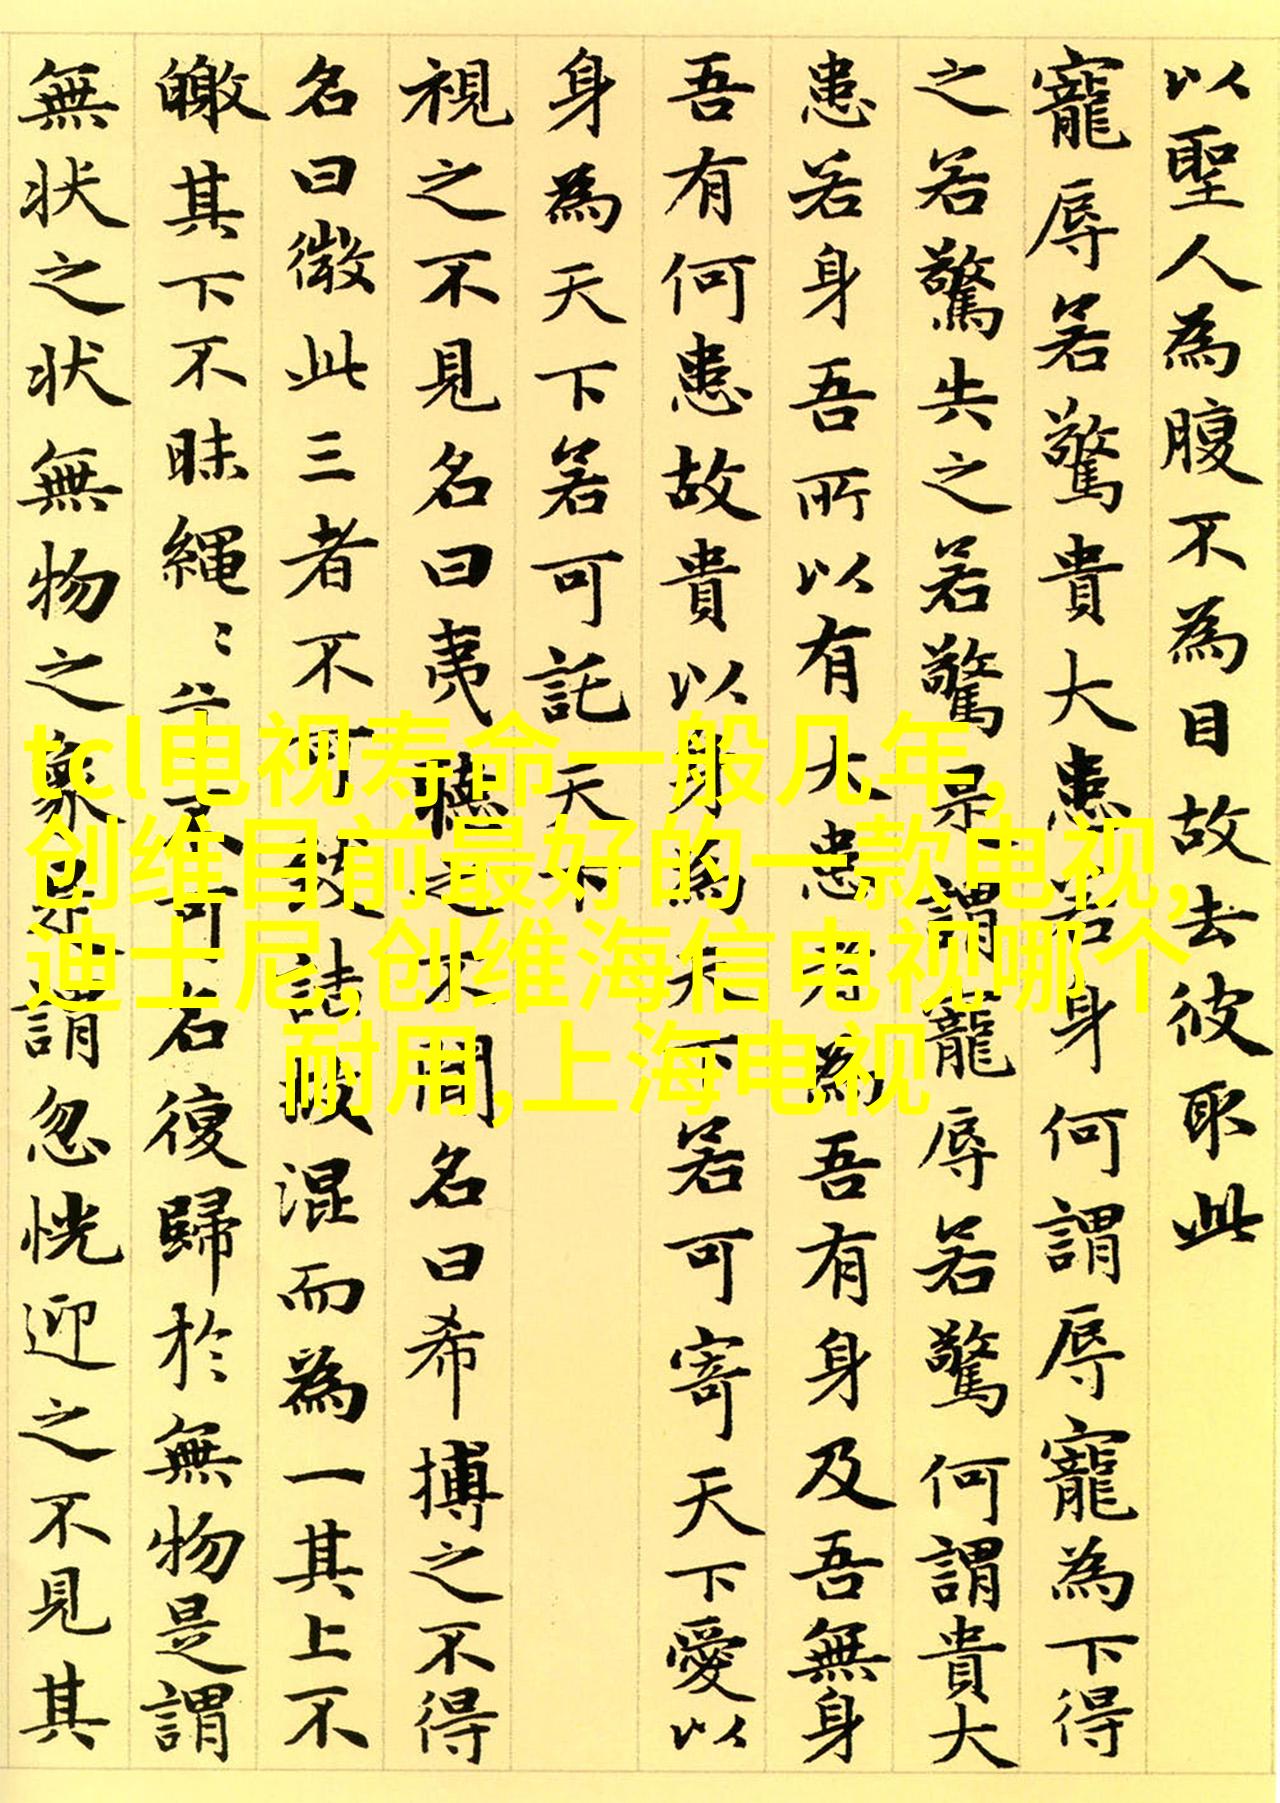 以聖人為腹不為目故去彼取此
寵辱若驚貴大患若身何謂辱寵為下得
之若驚失之若驚是謂寵辱若驚何謂貴大
患若身吾所以有大患者為吾有身及吾無身
吾有何患故貴以身為天下若可寄天下愛以
身為天下若可託天下
視之不見名曰夷聽之不聞名曰希搏之不得
名曰微此三者不可致詰故混而為一其上不
皦其下不昧繩〻兮不可名復歸於無物是謂
無状之状無物之象是謂忽恍迎之不見其
tcl电视寿命一般几年,
创维目前最好的一款电视,
迪士尼,创维海信电视哪个
耐用,上海电视